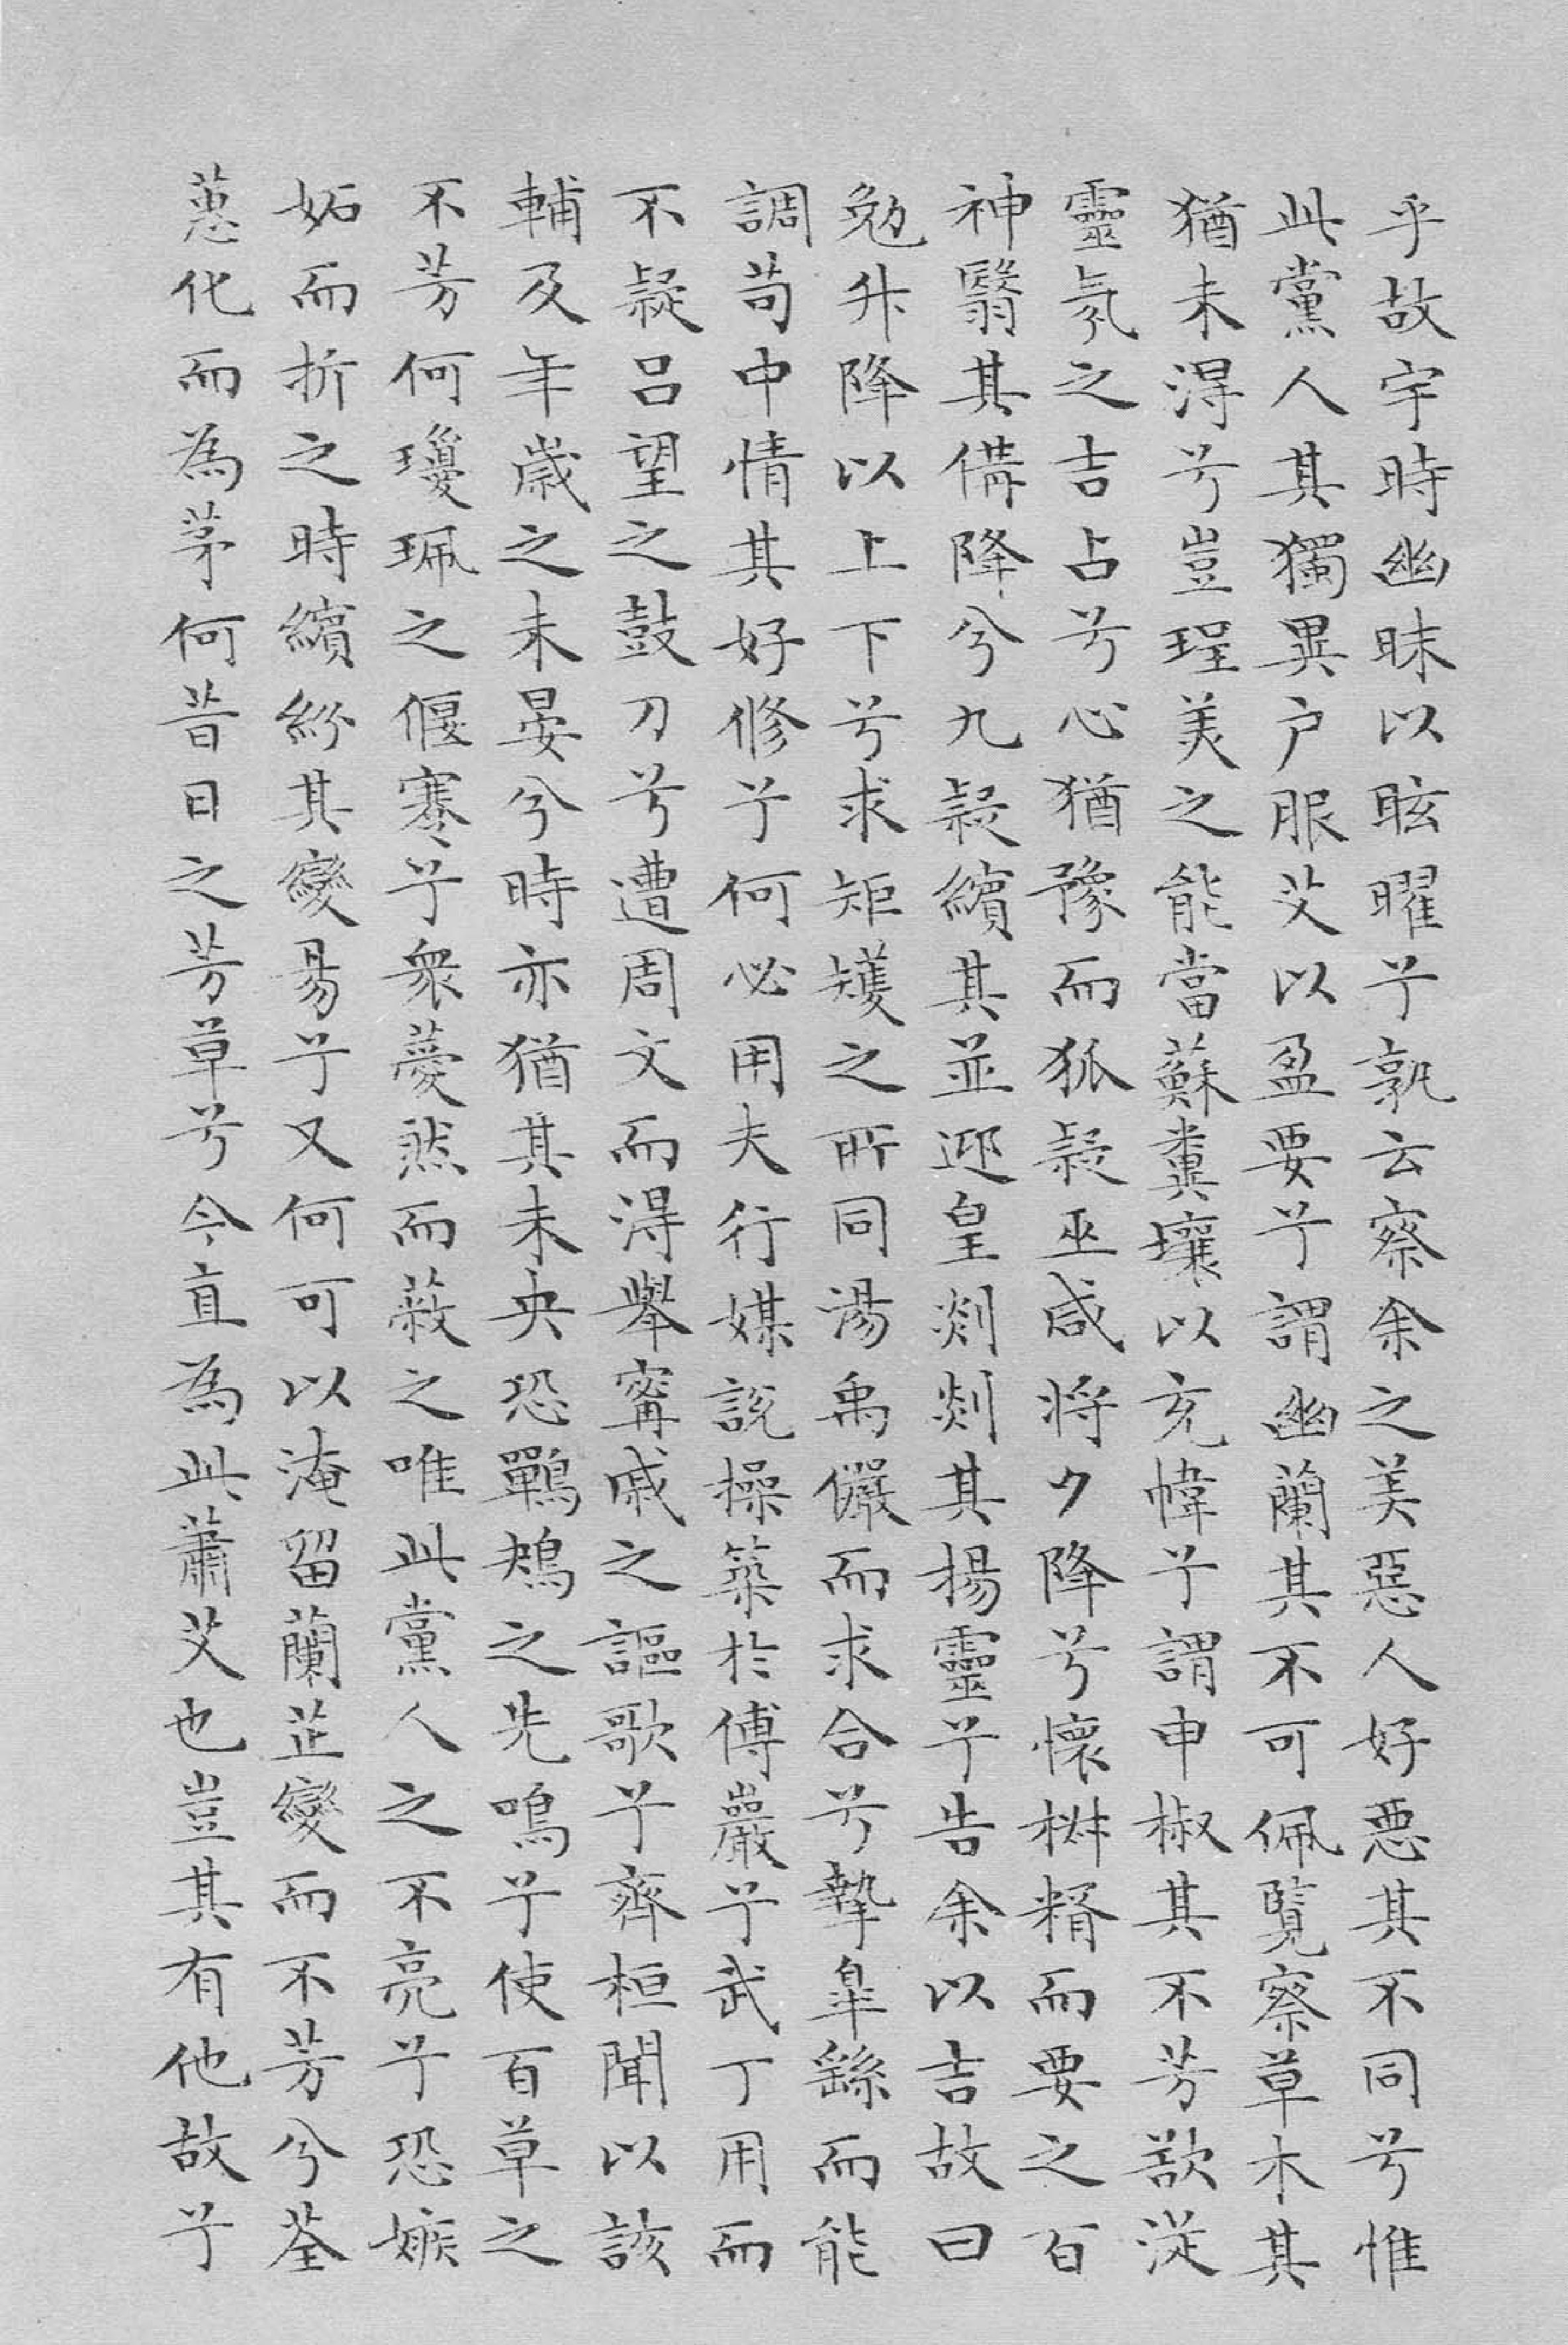 乎故宇時幽昧以眩曜兮孰云察余之美惡人好惡其不同兮惟
此黨人其獨異户服艾以盈要兮謂幽蘭其不可佩覽察草木其
猶未得兮豈珵美之能當蘇糞壤以充幃兮謂申椒其不芳欲從
靈氛之吉占兮心猶豫而狐疑巫咸將夕降兮懷椒糈而要之百
神翳其備降兮九疑繽其並迎皇剡剡其揚靈兮告余以吉故曰
勉升降以上下兮求矩矱之所同湯禹儼而求合兮摯皐繇而能
調苟中情其好修兮何必用夫行媒説操築於傅巖兮武丁用而
不疑吕望之鼓刀兮遭周文而得舉甯戚之謳歌兮齊桓聞以該
輔及年歲之未晏兮時亦猶其未央恐鷤鴂之先鳴兮使百草之
不芳何瓊珮之偃蹇兮衆薆然而蔽之唯此黨人之不亮兮恐嫉
妬而折之時繽紛其變易兮又何可以淹留蘭芷變而不芳兮荃
蕙化而為茅何昔日之芳草兮今直為此蕭艾也豈其有他故兮